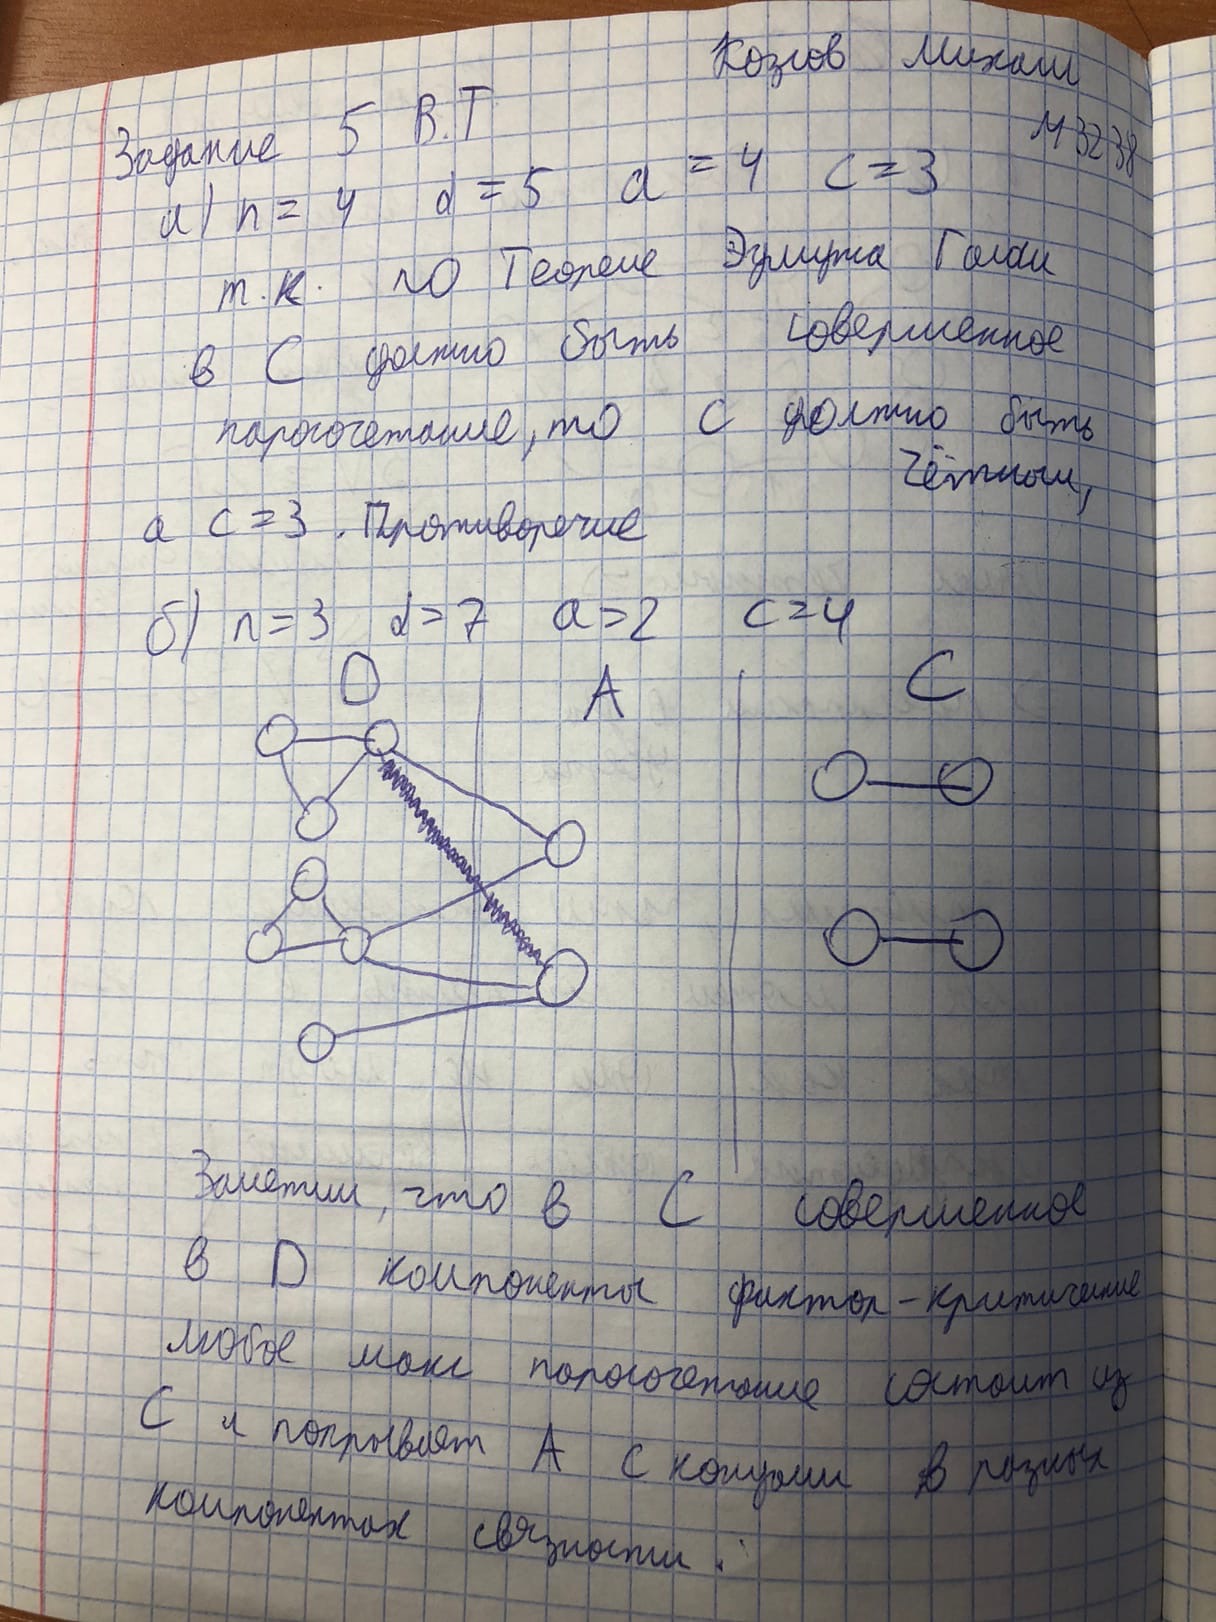 Козлов Михаил
M3238
Задание 5 В.Т
а) n = 4 d = 5 a = 4 c = 3
т.к. по Теореме Эдмундса Галаи
в C должно быть совершенное
паросочетание, то C должно быть
чётным,
а c = 3. Противоречие
б) n = 3 d = 7 a = 2 c = 4
D A C
Заметим, что в C совершенное
в D компоненты фактор-критичные
любое макс паросочетание состоит из
C и покрывает A с концами в разных
компонентах связности.